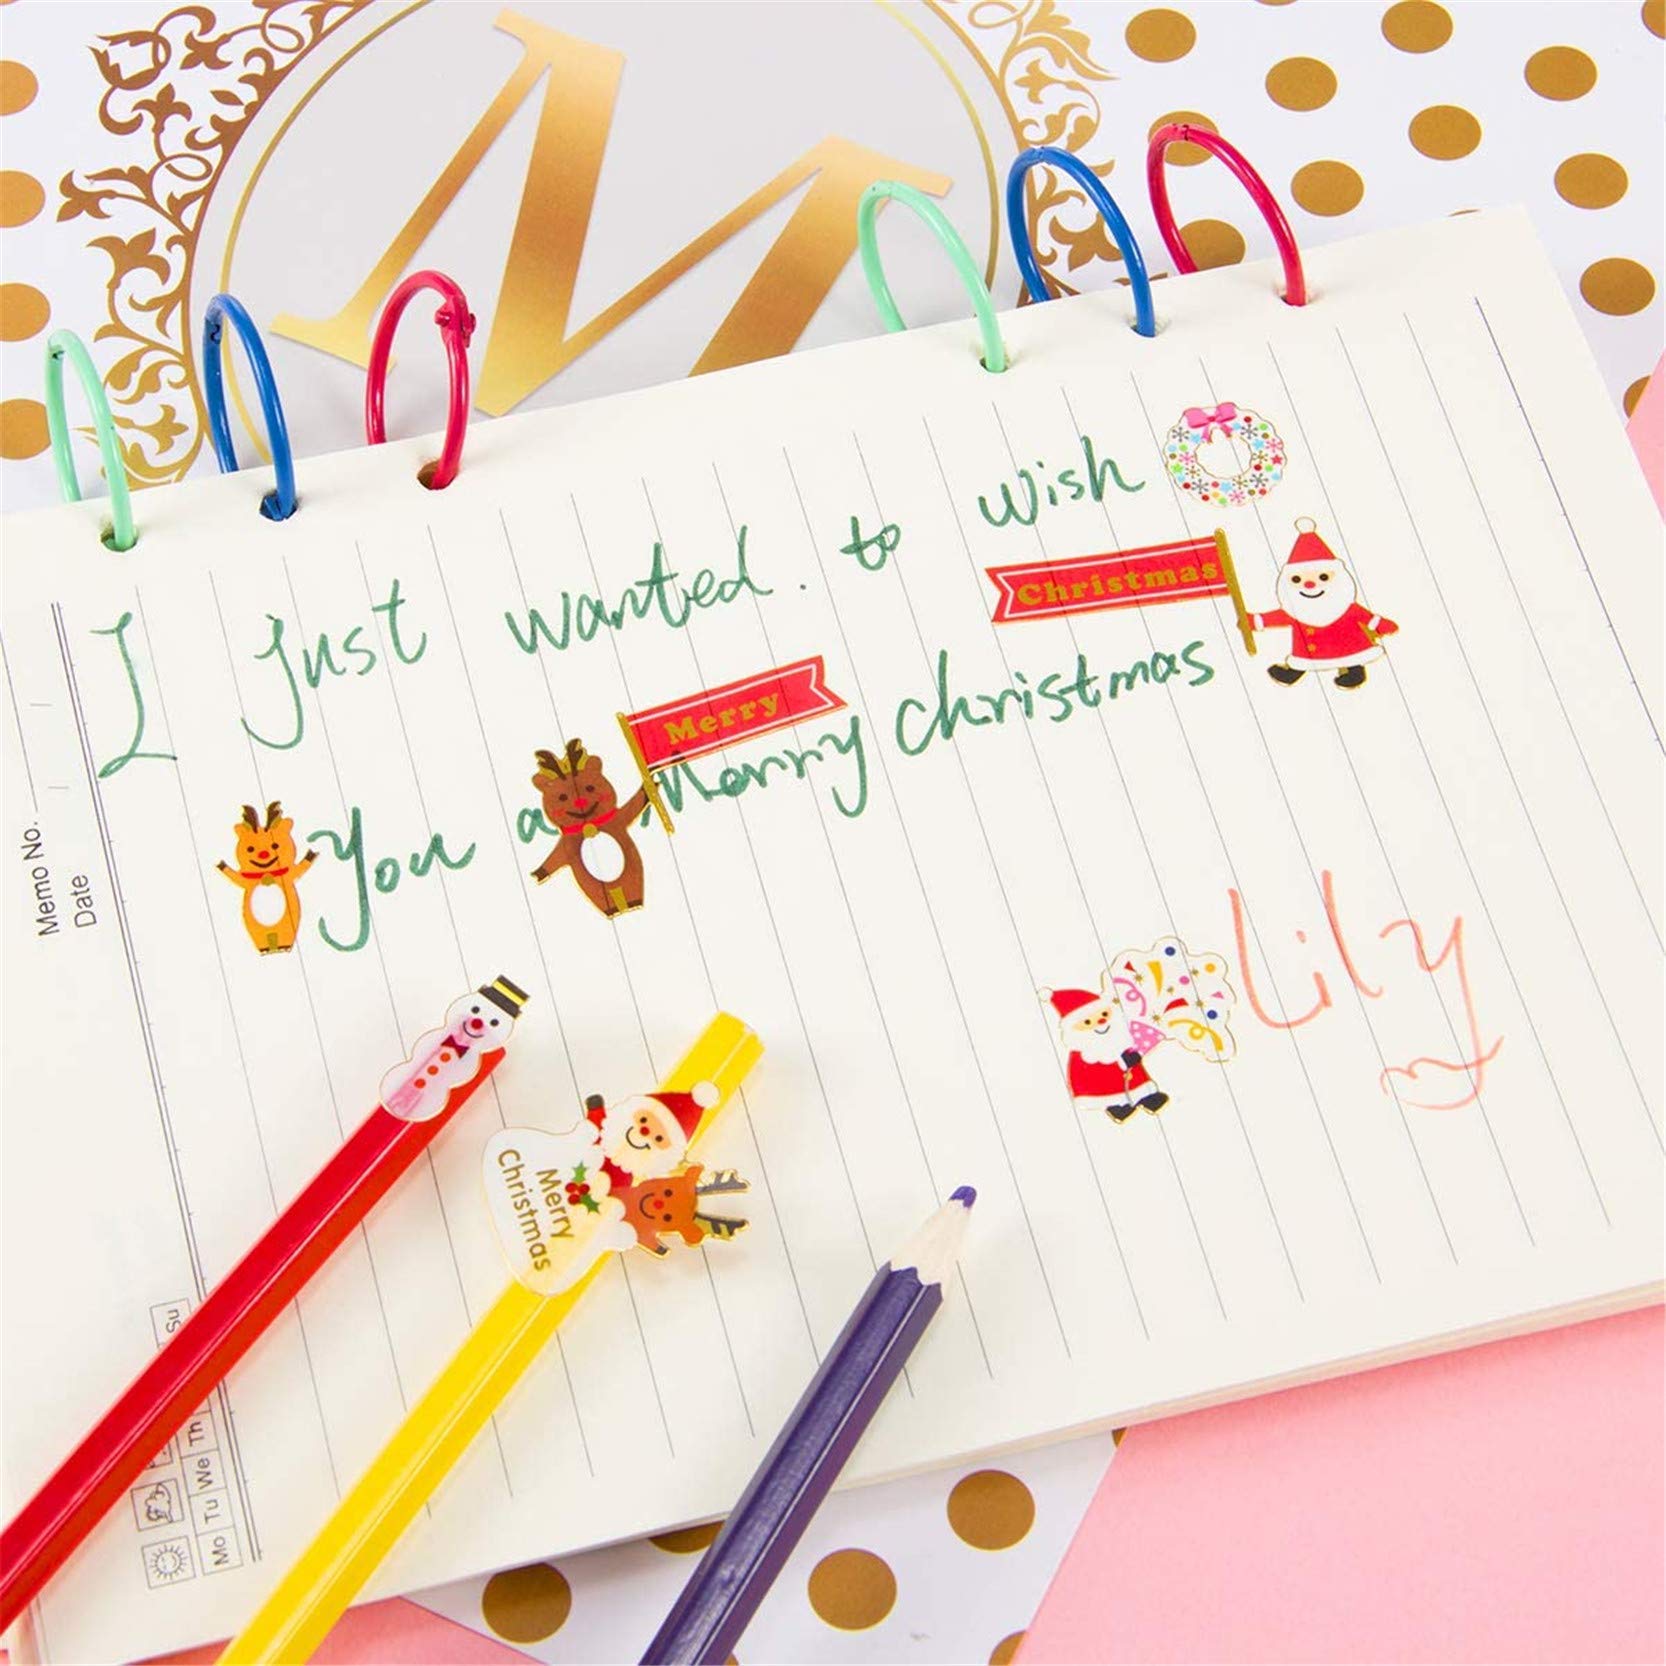 M
I Just wanted. to wish
Christmas
Merry
You a Merry christmas
Lily
Memo No.
Date
Merry
Christmas
Mo Tu We Th
Su